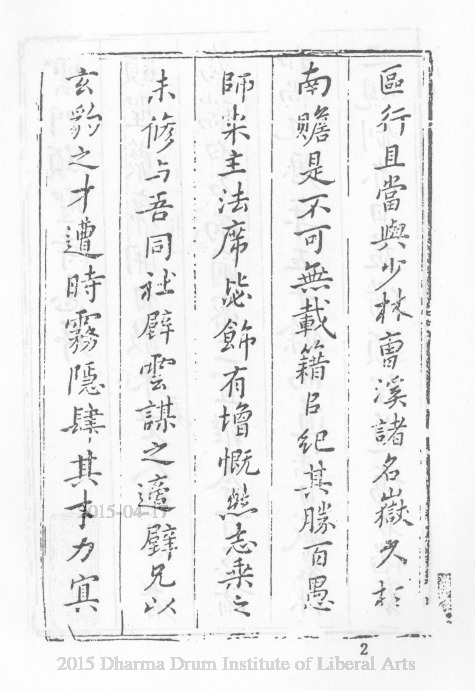 區行且當與少林曹溪諸名嶽久
南贍是不可無載籍㠯紀其勝百愚
師來主法席毖飾有增慨然志乘之
未修与吾同社辟雲謀之適辟兄以
玄豹之才遭時霧隱肆其才力寘
2015-04-17
2
2015 Dharma Drum Institute of Liberal Arts